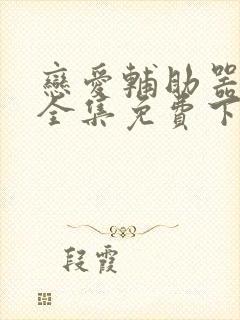 戀愛輔助器
全集免費下
段霞